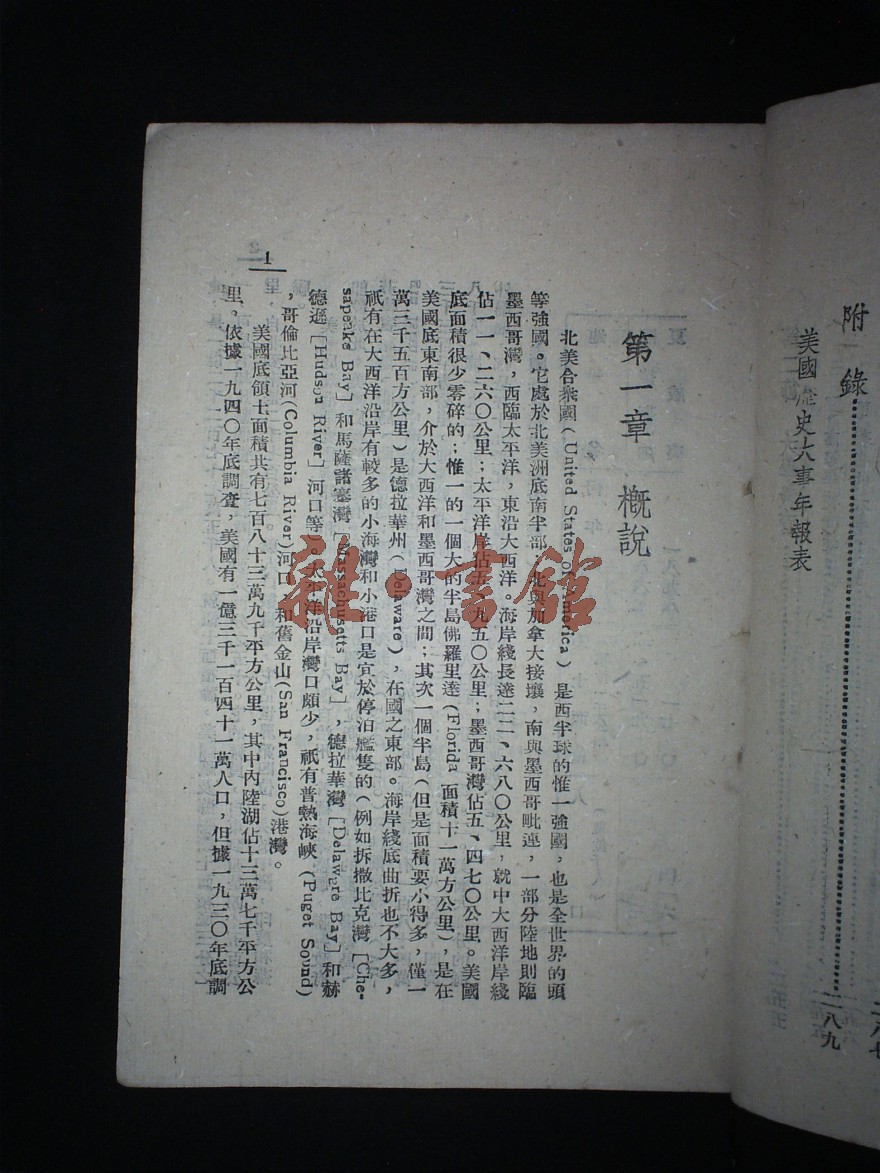 附錄⋯⋯⋯⋯⋯⋯二八七
美國歷史大事年報表 二八九
第一章 概說
北美合衆國(United States of America)是西半球的惟一強國,也是全世界的頭
等強國。它處於北美洲底南半部,北與加拿大接壤,南與墨西哥毗連,一部分陸地則臨
墨西哥灣,西臨太平洋,東沿大西洋。海岸綫長達二二、六八〇公里,就中大西洋岸綫
佔一一、二六〇公里;太平洋岸佔五、九五〇公里;墨西哥灣佔五、四七〇公里。美國
底面積很少零碎的;惟一的一個大的半島佛羅里達(Florida 面積十一萬方公里),是在
美國底東南部,介於大西洋和墨西哥灣之間;其次一個半島(但是面積要小得多,僅一
萬三千五百方公里)是德拉華州(Delaware),在國之東部。海岸綫底曲折也不大多,
祇有在大西洋沿岸有較多的小海灣和小港口是宜於停泊艦隻的(例如拆撒比克灣[Che-
sapeake Bay]和馬薩諸塞灣[Massachusetts Bay],德拉華灣[Delaware Bay]和赫
德遜[Hudson River]河口等)。太平洋沿岸灣口頗少,祇有普熱海峽(Puget Sound)
,哥倫比亞河(Columbia River)河口,和舊金山(San Francisco)港灣。
美國底領土面積共有七百八十三萬九千平方公里,其中內陸湖佔十三萬七千平方公
里。依據一九四〇年底調查,美國有一億三千一百四十一萬人口,但據一九三〇年底調
1
雜·書館